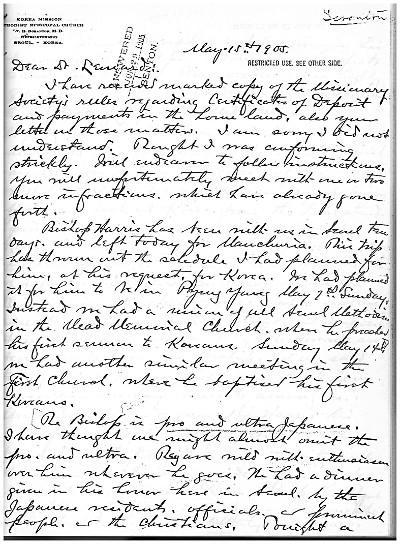 KOREA MISSION
METHODIST EPISCOPAL CHURCH
W. B. Scranton, M.D.
SEOUL - KOREA.
Scranton
ANSWERED
1905
BENTON.
May 15th 1905.
RESTRICTED USE. SEE OTHER SIDE.
Dear Dr.
I have received marked copy of the Missionary
Society's rules regarding Certificates of Deposit
and payments in the homeland, also your
letter on those matters. I am sorry I did not
understand. Thought I was conforming
strickly. Will endeavor to follow instructions.
You will unfortunately meet with one or two
more infractions, which have already gone
forth.
Bishop Harris has been with us in Seoul ten
days. and left today for Manchuria. This trip
has thrown out the schedule I had planned for
him, at his request, for Korea. We had planned
it for him to be in Pyeng Yang May 7th Sunday,
Instead we had a union of all Seoul Methodism
in the Mead Memorial Church, when he preached
his first sermon to Koreans. Sunday May 14th
we had another similar meeting in the
First Church, where he baptised his first
Koreans.
The Bishop is pro and ultra Japanese.
I have thought we might almost omit the
pro. and ultra. They are wild with enthusiasm
over him wherever he goes. He had a dinner
given in his honor here in Seoul, by the
Japanese residents, officials, or prominent
people, or the Christians. Tonight a